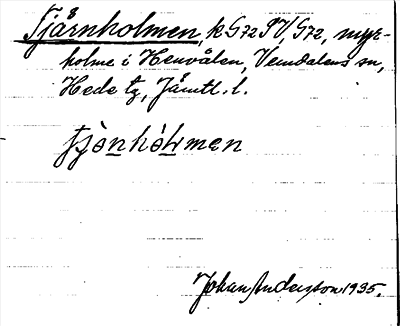 Tjårnholmen, k G72 SV, G72, myr-
holme i Henvålen, Vemdalens sn,
Hede tg, Jämtl. l.
Johan Anderson 1935.